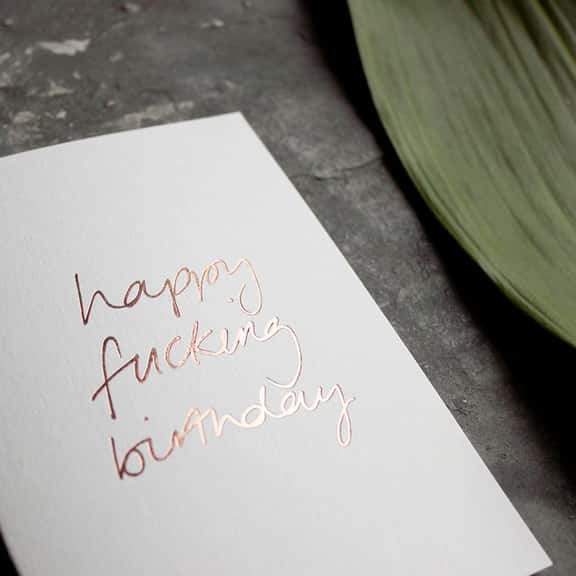 happy
fucking
birthday